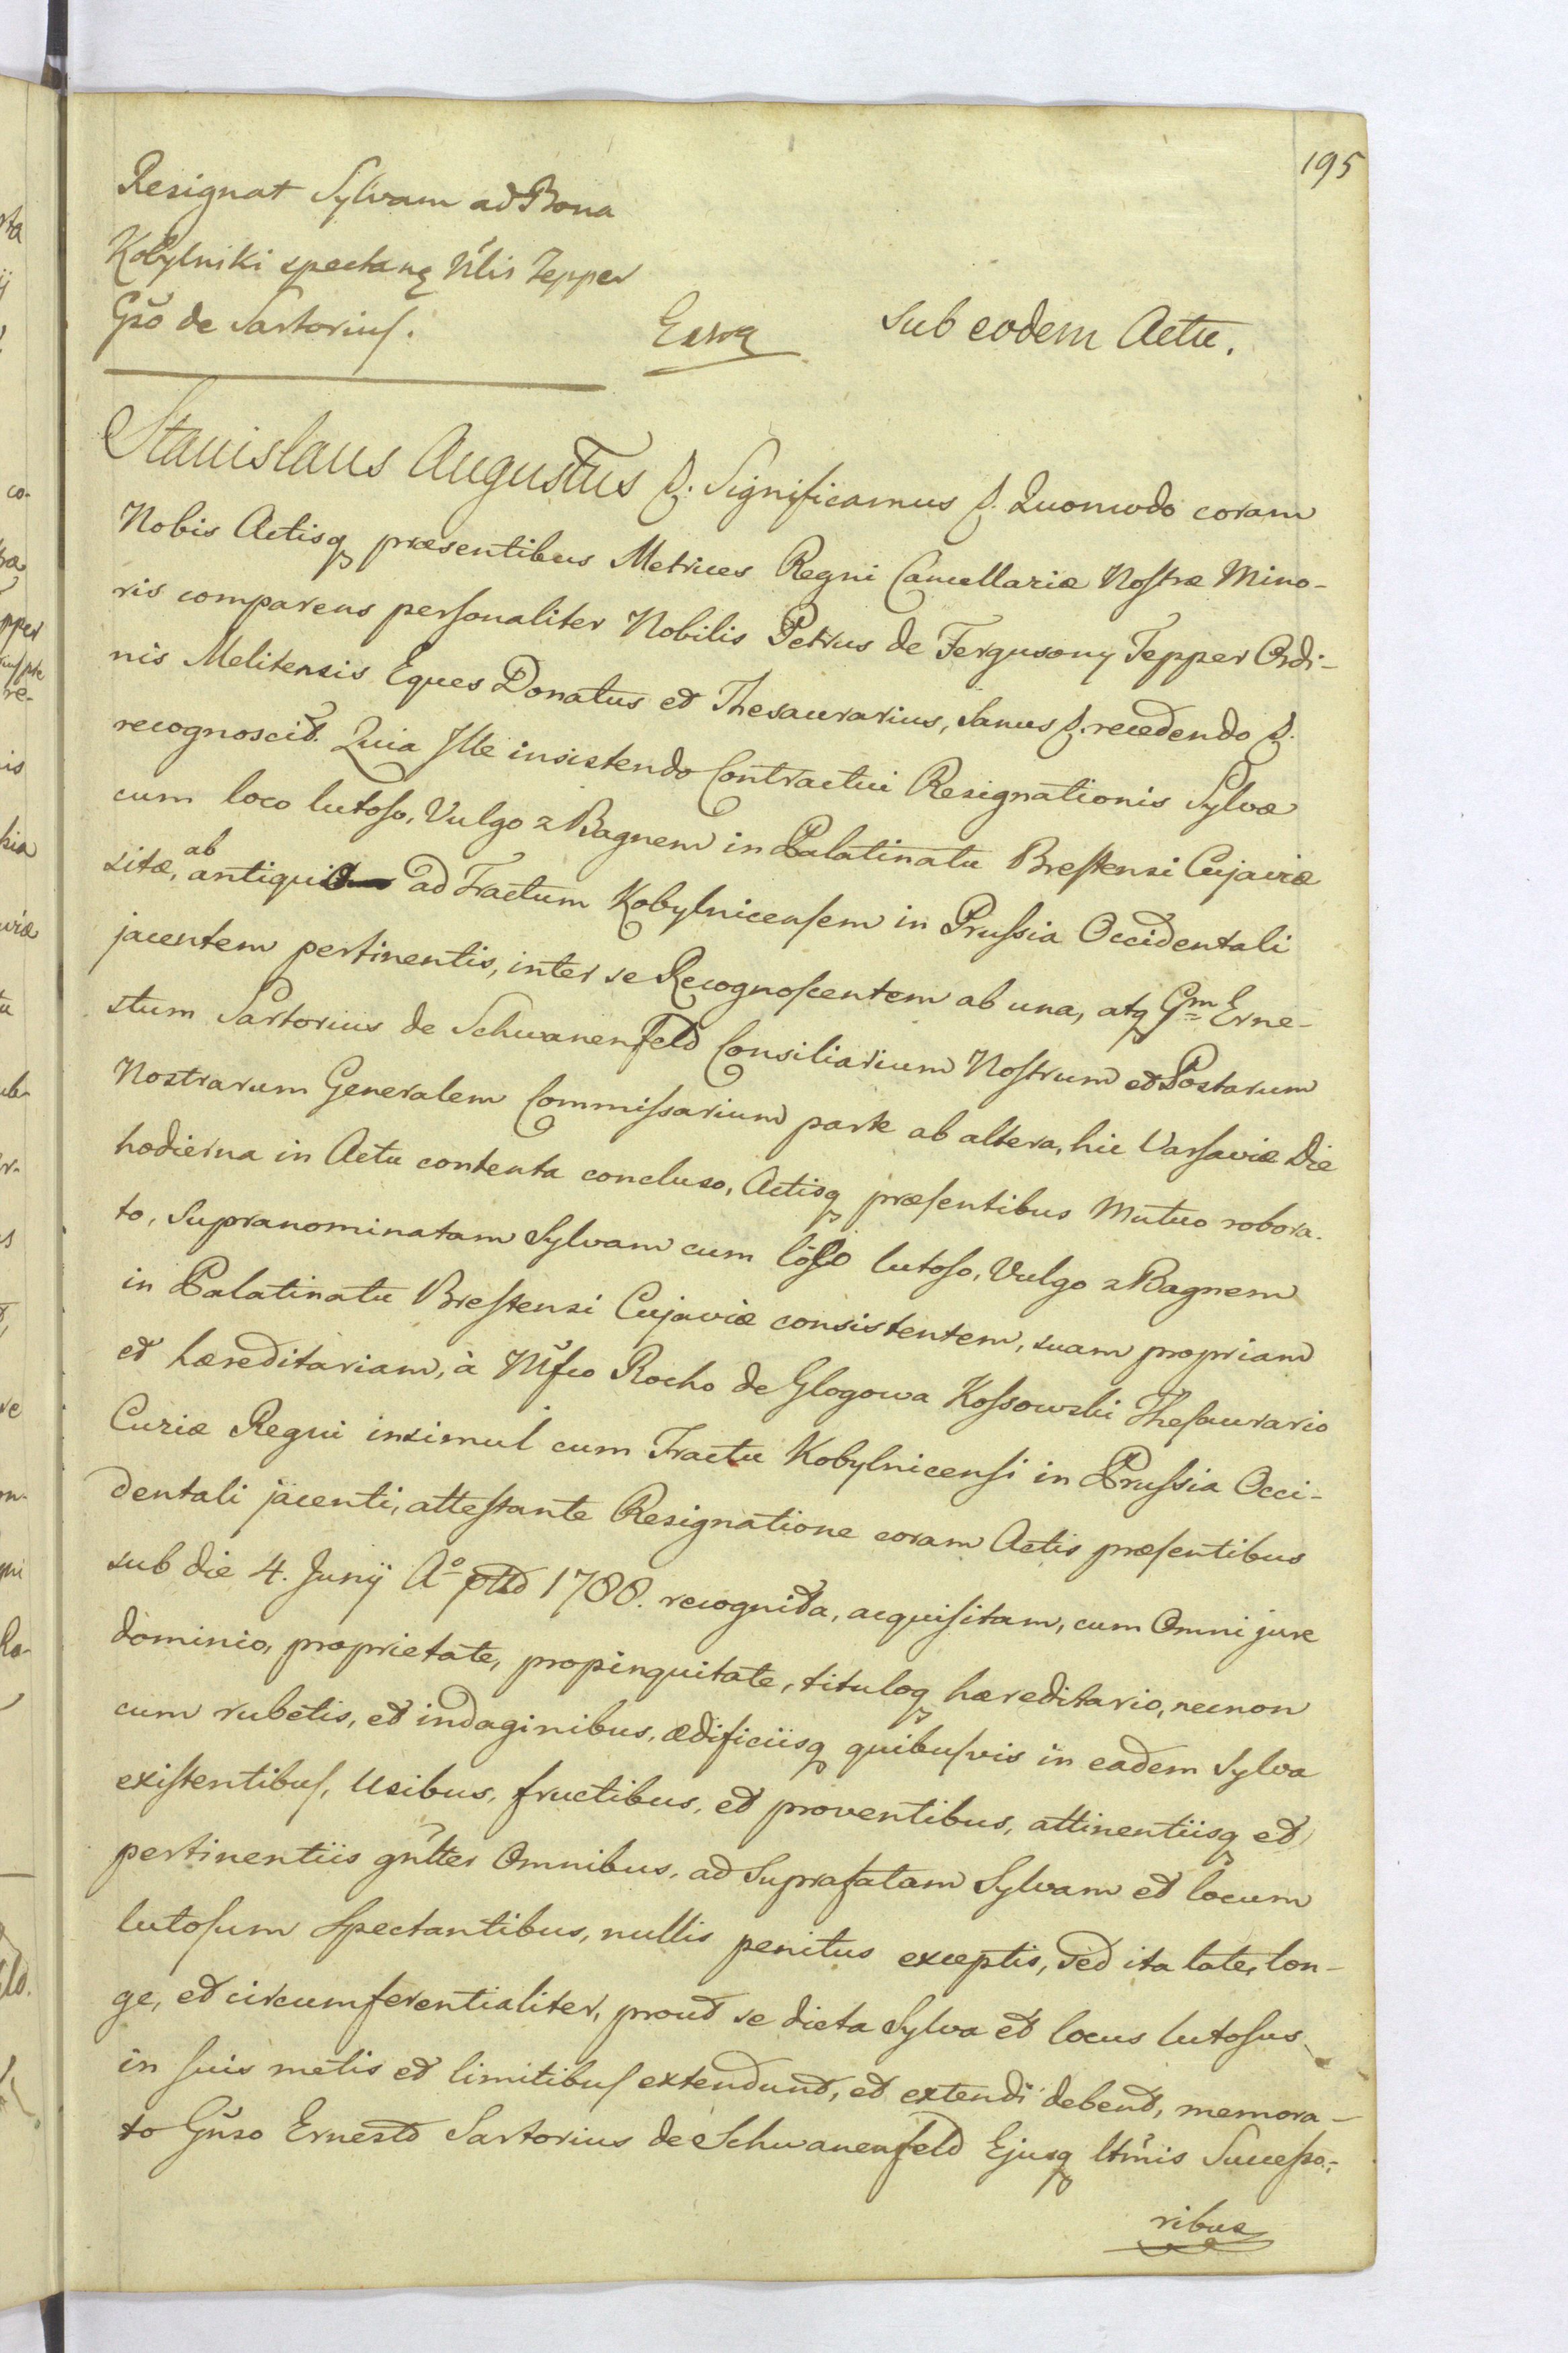 195
Resignat Sylvam ad Bona
Kobylniki spectanę Nlis Tepper
Gso de Sartorius.
sub eodem Actu.
Stanislaus Augustus &. Significamus &. Quomodo coram
Nobis Actisq præsentibus Metrices Regni Cancellariæ Nostræ Mino-
ris comparens personaliter Nobilis Petrus de Fergusony Tepper Ordi-
nis Melitensis Eques Donatus et Thesaurarius, sanus &. recedendo &.
recognoscit. Quia Ille insistendo Contractui Resignationis Sylvæ
cum loco lutoso, Vulgo z Bagnem in Palatinatu Brestensi Cujaviæ
sitæ, ab antiquo ad Tractum Kobylnicensem in Prussia Occidentali
jacentem pertinentis, inter se Recognoscentem ab una, atq Gm Erne-
stum Sartorius de Schwanenfeld Consiliarium Nostrum et Postarum
Nostrarum Generalem Commissarium parte ab altera, hic Varsaviæ Die
hodierna in Actu contenta concluso, Actisq præsentibus Mutuo robora-
to, supranominatam Sylvam cum loco lutoso, Vulgo z Bagnem
in Palatinatu Brestensi Cujaviæ consistentem, suam propriam
et hæreditariam, à Mfco Rocho de Glogowa Kossowski Thesaurario
Curiæ Regni insimul cum Tractu Kobylnicensi in Prussia Occi-
dentali jacenti, attestante Resignatione coram Actis præsentibus
sub die 4. Junij Aº 1788. recognita, acquisitam, cum Omni jure
dominio, proprietate, propinquitate, tituloq hæreditario, necnon
cum rubetis, et indaginibus, ædificiisq quibusvis in eadem Sylva
existentibus, Usibus, fructibus, et proventibus, attinentiisq et
pertinentiis gnlter Omnibus, ad Suprafatam Sylvam et locum
lutosum Spectantibus, nullis penitus exceptis, sed ita late, lon-
ge, et circumferentialiter, prout se dicta Sylva et locus lutosus
in suis metis et limitibus extendunt, et extendi debent, memora-
to Gnso Ernesto Sartorius de Schwanenfeld Ejusq ltmis Successo-
ribus